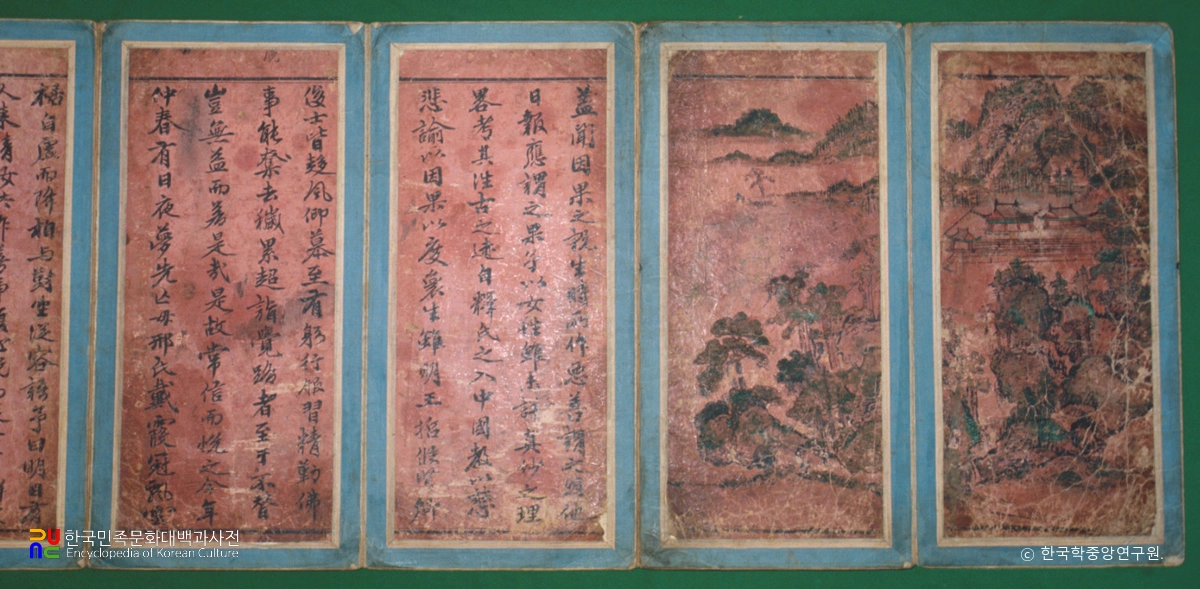 蓋聞因果之說生時所作惡善謂之因他
日報應謂之果予以女性雖未諳眞妙之理
畧考其往古之迹自釋氏之入中國教以慈
悲諭以因果以度衆生雖明王賢卿
俊士皆趍風仰慕至有躬行服習精勤佛
事能棄去穢累超詣覺路者至于不
豈無益而若是哉是故常信而悅之今年
仲春有日夜夢先亡母邢氏戴霞冠飄
裙自虛而降相與對坐從容語予曰明日有
人来請汝
한국민족문화대백과사전
Encyclopedia of Korean Culture
© 한국학중앙연구원.